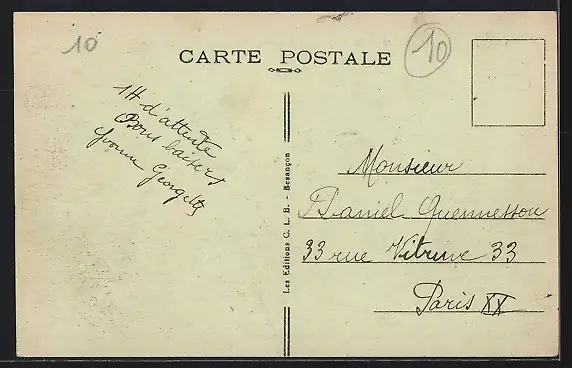 10
CARTE POSTALE
10
1H d'attente
Bons baisers
Yvonne Georgette
Les Editions C. L. B. - Besançon
Monsieur
Daniel Guennesson
33 rue Vitruve 33
Paris XX